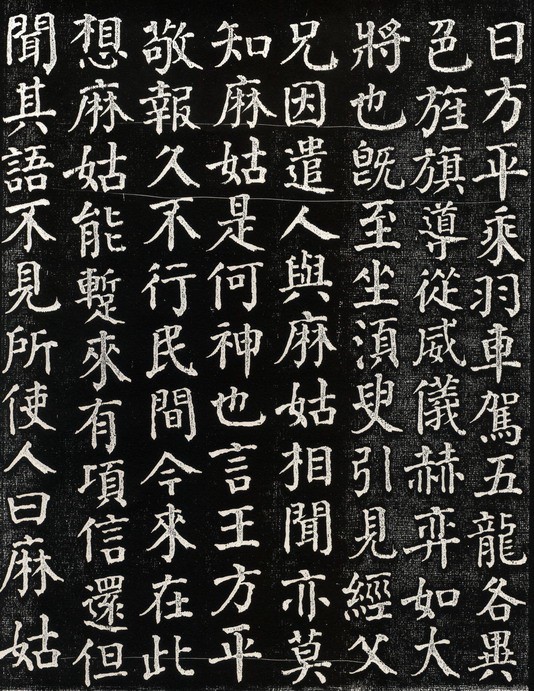 日方平乘羽車駕五龍各異
色旌旗導從威儀赫弈如大
將也旣至坐湏臾引見經父
兄因遣人與麻姑相聞亦莫
知麻姑是何神也言王方平
敬報久不行民間今來在此
想麻姑能蹔來有頃信還但
聞其語不見所使人曰麻姑